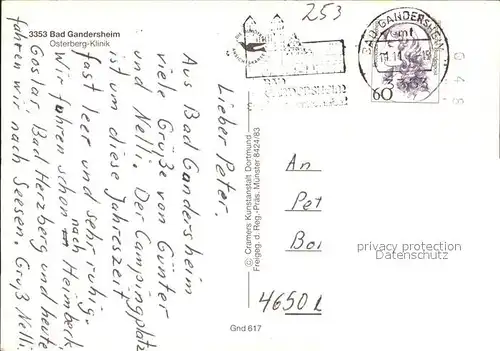 3353 Bad Gandersheim
Osterberg-Klinik
Lieber Peter.
Aus Bad Gandersheim
viele Grüße von Günter
und Nelli. Der Campingplatz
ist um diese Jahreszeit
fast leer und sehr ruhig.
Wir fuhren schon nach Heimbeck
Goslar, Bad Herzberg und heute
fahren wir nach Seesen. Gruß Nelli.
© Cramers Kunstanstalt Dortmund
Freigeg. d. Reg.-Präs. Münster 8424/83
Gnd 617
253
BAD GANDERSHEIM
BAD
GANDERSHEIM
60
G48
An
Pet
Boi
4650
privacy protection
Datenschutz